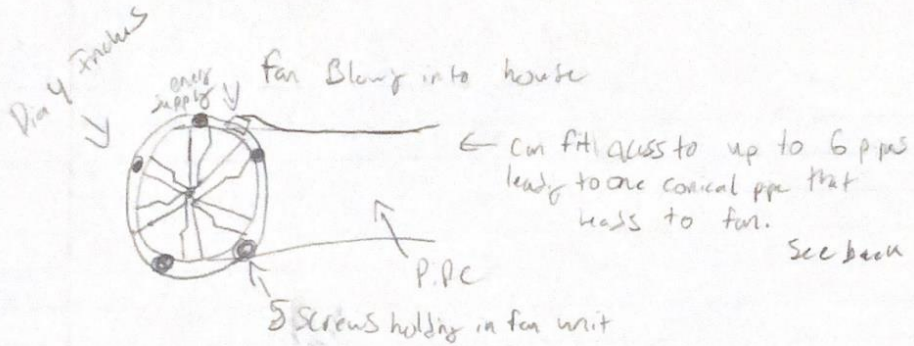 Dia 4 Inches
energy
supply
fan Blowing into house
← can fit access to up to 6 pipes
leading to one conical pipe that
leads to fan.
See back
P.PC
5 screws holding in fan unit